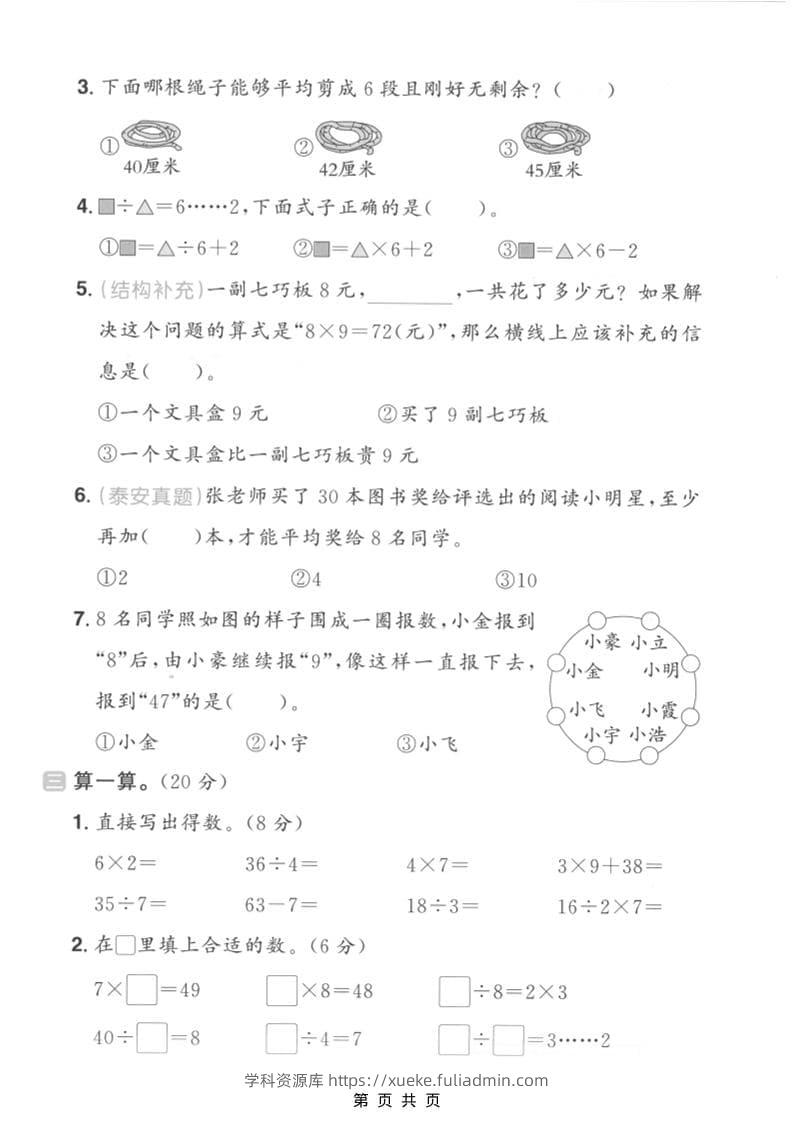 3. 下面哪根绳子能够平均剪成 6 段且刚好无剩余?(    )
① 40厘米 ② 42厘米 ③ 45厘米
4. ■÷△=6……2,下面式子正确的是(    )。
①■=△÷6+2 ②■=△×6+2 ③■=△×6-2
5. (结构补充)一副七巧板 8 元,________,一共花了多少元? 如果解
决这个问题的算式是“8×9=72(元)”,那么横线上应该补充的信
息是(    )。
①一个文具盒 9 元 ②买了 9 副七巧板
③一个文具盒比一副七巧板贵 9 元
6. (泰安真题)张老师买了 30 本图书奖给评选出的阅读小明星,至少
再加(    )本,才能平均奖给 8 名同学。
①2 ②4 ③10
7. 8 名同学照如图的样子围成一圈报数,小金报到
“8”后,由小豪继续报“9”,像这样一直报下去,
报到“47”的是(    )。
①小金 ②小宇 ③小飞
小豪 小立
小金 小明
小飞 小霞
小宇 小浩
三 算一算。(20 分)
1. 直接写出得数。(8 分)
6×2= 36÷4= 4×7= 3×9+38=
35÷7= 63-7= 18÷3= 16÷2×7=
2. 在□里填上合适的数。(6 分)
7×□=49 □×8=48 □÷8=2×3
40÷□=8 □÷4=7 □÷□=3……2
学科资源库 https://xueke.fuliadmin.com/
第 页 共 页